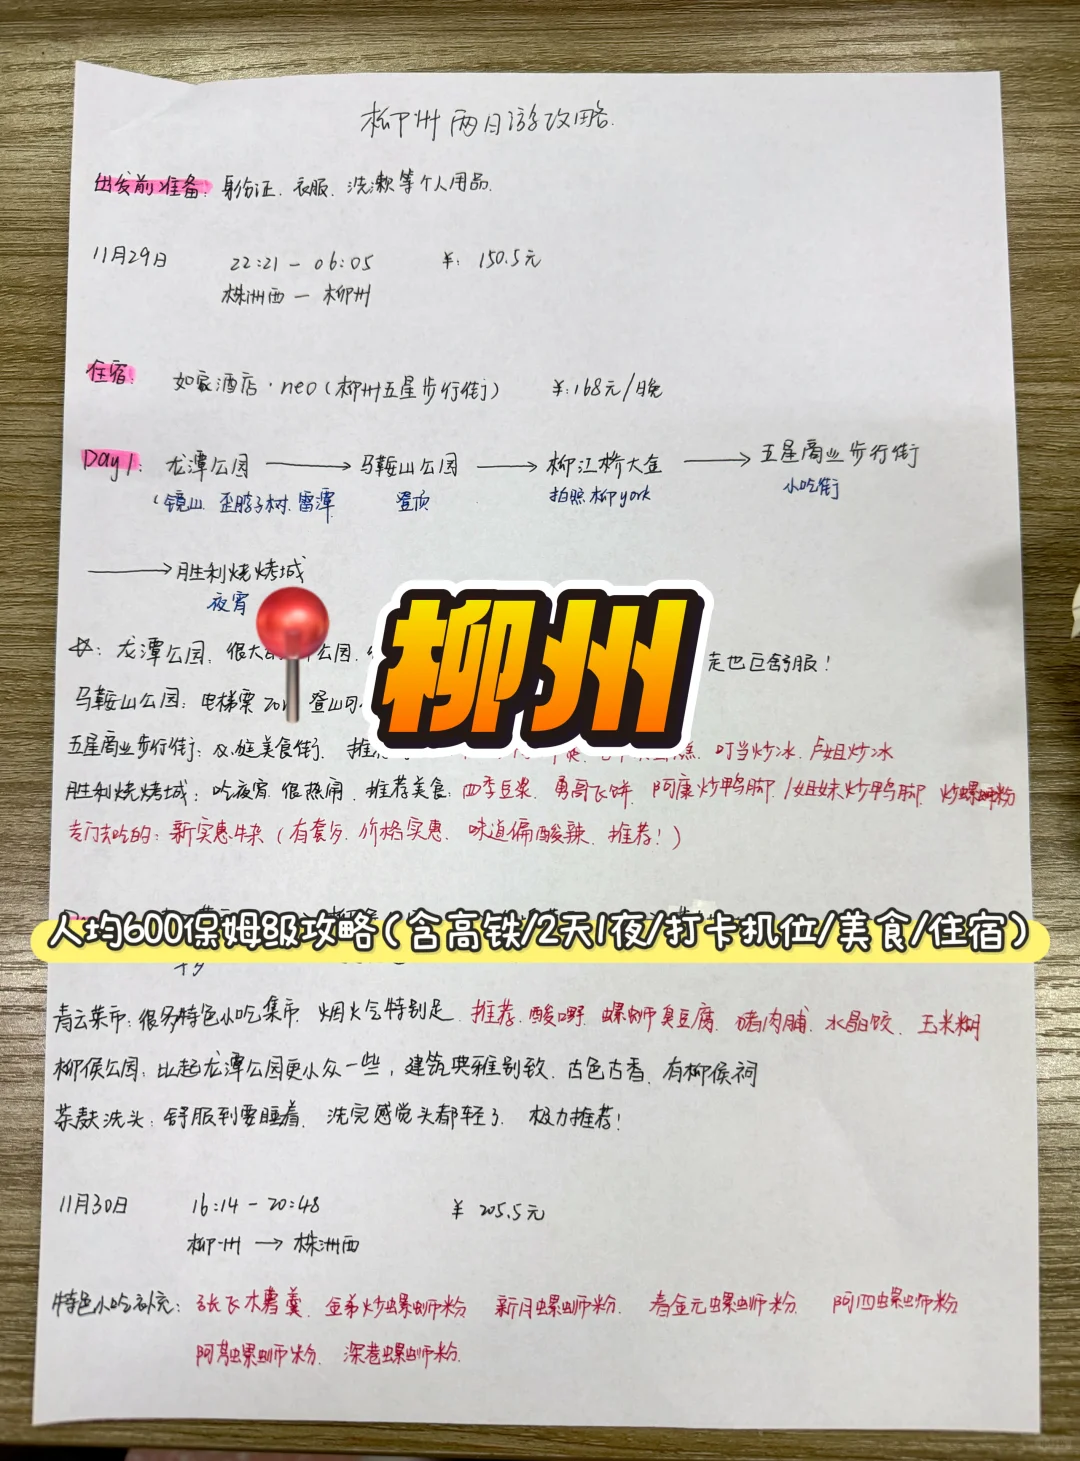 柳州两日游攻略.
出发前准备: 身份证、衣服、洗漱等个人用品.
11月29日 22:21 - 06:05 ¥: 150.5元
株洲西 — 柳州
住宿: 如家酒店·neo(柳州五星步行街) ¥:168元/晚
Day1: 龙潭公园 → 马鞍山公园 → 柳江桥大金 → 五星商业步行街
镜山 歪脖子树 雷潭 登顶 拍照 柳york 小吃街
→ 胜利烧烤城
夜宵
龙潭公园: 很大 公园, 走也巨舒服!
马鞍山公园: 电梯票 登山
柳州
五星商业步行街: 美食街, 叮当炒冰、卢姐炒冰
胜利烧烤城: 吃夜宵 很热闹 推荐美食: 四季豆浆、勇哥飞饼、阿康炒鸭脚、姐妹炒鸭脚、炒螺蛳粉
专门去吃的: 新实惠牛杂(有套夕、价格实惠、味道偏酸辣、推荐!)
人均600保姆级攻略(含高铁/2天1夜/打卡机位/美食/住宿)
青云菜市: 很多特色小吃集市 烟火气特别足. 推荐 酸嘢、螺蛳臭豆腐、猪肉脯、水晶饺、玉米糊
柳侯公园: 比起龙潭公园更小众一些, 建筑典雅别致、古色古香、有柳侯祠
茶麸洗头: 舒服到要睡着、洗完感觉头都轻了、极力推荐!
11月30日 16:14 - 20:48 ¥ 205.5元
柳州 → 株洲西
特色小吃补充: 张飞木薯羹、金弟炒螺蛳粉 新月螺蛳粉、春金元螺蛳粉、阿四螺蛳粉
螺蛳粉、深巷螺蛳粉.